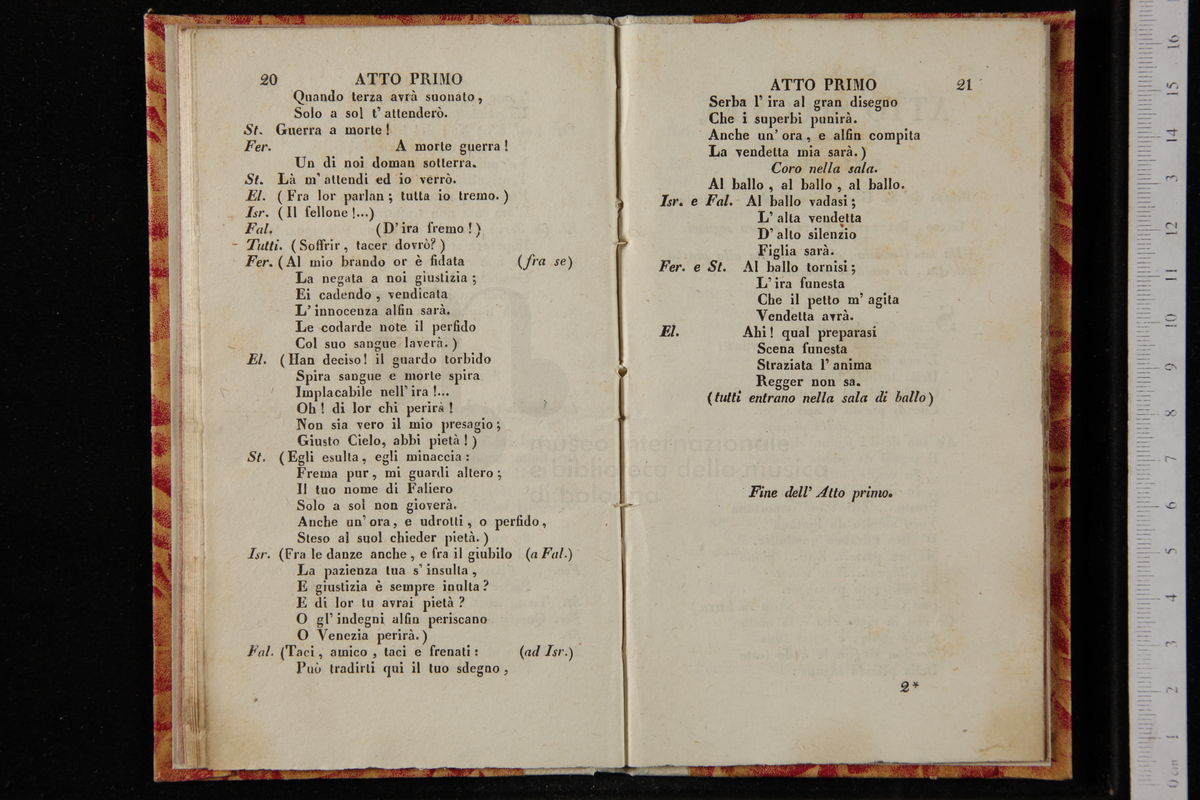 20 ATTO PRIMO
Quando terza avrà suonato,
Solo a sol t' attenderò.
St. Guerra a morte!
Fer. A morte guerra!
Un di noi doman sotterra.
St. Là m' attendi ed io verrò.
El. (Fra lor parlan; tutta io tremo.)
Isr. (Il fellone!...)
Fal. (D' ira fremo!)
Tutti. (Soffrir, tacer dovrò?)
Fer. (Al mio brando or è fidata (fra se)
La negata a noi giustizia;
Ei cadendo, vendicata
L' innocenza alfin sarà.
Le codarde note il perfido
Col suo sangue laverà.)
El. (Han deciso! il guardo torbido
Spira sangue e morte spira
Implacabile nell' ira!...
Oh! di lor chi perirà!
Non sia vero il mio presagio;
Giusto Cielo, abbi pietà!)
St. (Egli esulta, egli minaccia:
Frema pur, mi guardi altero;
Il tuo nome di Faliero
Solo a sol non gioverà.
Anche un' ora, e udrotti, o perfido,
Steso al suol chieder pietà.)
Isr. (Fra le danze anche, e fra il giubilo (a Fal.)
La pazienza tua s' insulta,
E giustizia è sempre inulta?
E di lor tu avrai pietà?
O gl' indegni alfin periscano
O Venezia perirà.)
Fal. (Taci, amico, taci e frenati: (ad Isr.)
Può tradirti qui il tuo sdegno,
ATTO PRIMO 21
Serba l' ira al gran disegno
Che i superbi punirà.
Anche un' ora, e alfin compita
La vendetta mia sarà.)
Coro nella sala.
Al ballo, al ballo, al ballo.
Isr. e Fal. Al ballo vadasi;
L' alta vendetta
D' alto silenzio
Figlia sarà.
Fer. e St. Al ballo tornisi;
L' ira funesta
Che il petto m' agita
Vendetta avrà.
El. Ahi! qual preparasi
Scena funesta
Straziata l' anima
Regger non sa.
(tutti entrano nella sala di ballo)
museo internazionale
e biblioteca della musica
di bologna
Fine dell' Atto primo.
2*
16
15
14
3
12
11
10
9
8
7
6
5
4
3
2
1
0 cm